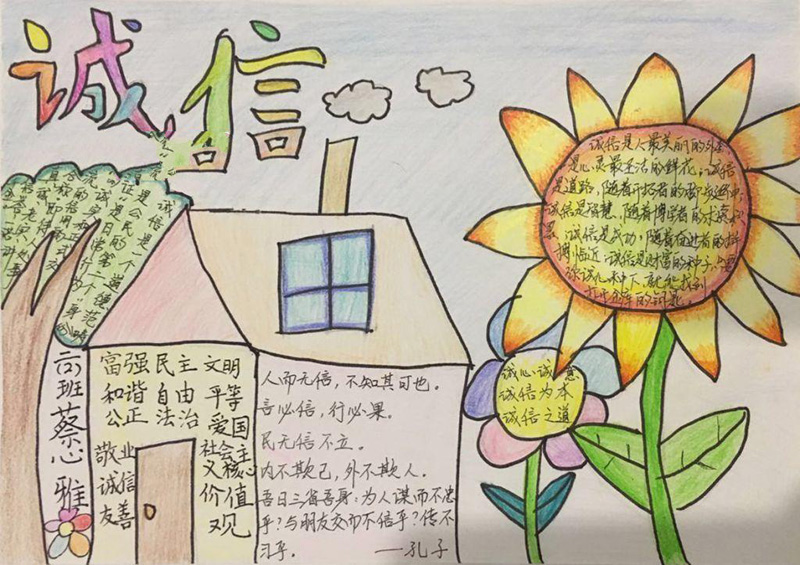 诚信
诚信是人最美丽的外套
是心灵最圣洁的鲜花。诚信
是道路，随着开拓者的脚步延伸，
诚信是智慧，随着博学者的求索
累，诚信是成功，随着奋进者的拼
搏临近，诚信是财富的种子，只要
你诚心种下，就能找到
打开金库的钥匙。
诚心诚意
诚信为本
诚信之道
诚信是一个
道德范
是公民的
第二个
身份
富强 民主 文明
和谐 自由 平等
公正 法治 爱国
敬业
诚信
友善
社会主
义核心
价值
观
人而无信，不知其可也。
言必信，行必果。
民无信不立。
内不欺己，外不欺人。
吾日三省吾身：为人谋而不忠
乎？与朋友交而不信乎？传不
习乎。 ——孔子
班蔡心雅